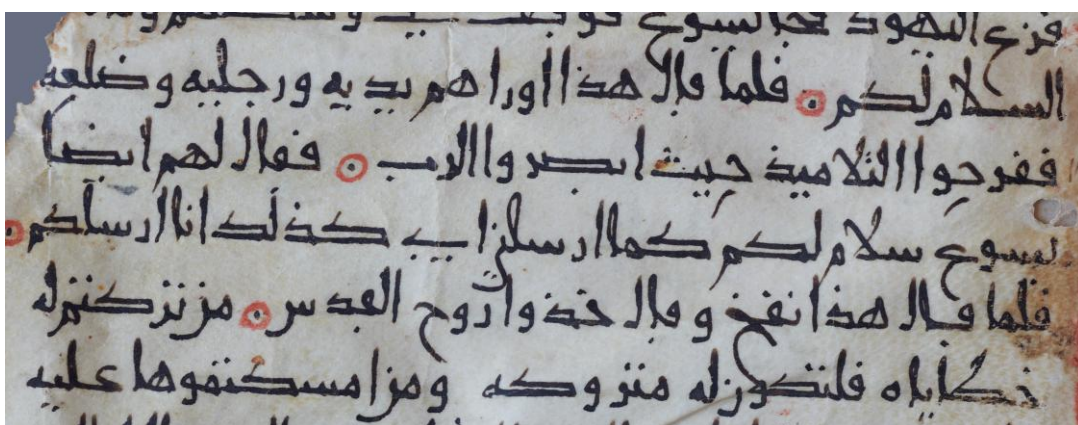 فزع اليهود فجا يسوع فوقف في وسطهم وقال
السلام لكم فلما قال هذا اوراهم يديه ورجليه وضلعه
ففرحوا التلاميذ حيث ابصروا الرب فقال لهم ايضا
يسوع سلام لكم كما ارسلني ابي كذلك انا ارسلكم
فلما قال هذا نفخ وقال خذوا روح القدس من تركتم له
خطاياه فلتكون له متروكه ومن امسكتموها عليه